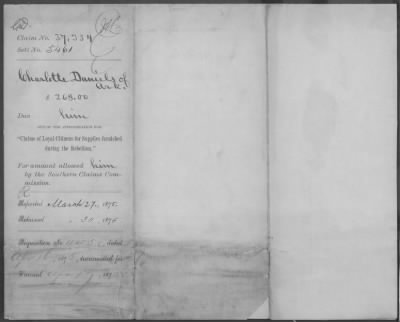 Claim No. 37,354
Sett No. 5461
Charlotte Daniels of
Ark.
$ 268.00
Due him
OUT OF THE APPROPRIATION FOR
"Claims of Loyal Citizens for Supplies furnished
during the Rebellion."
For amount allowed him
by the Southern Claims Com-
mission.
Reported March 27, 1875.
Returned " 30, 1875
Requisition No. dated